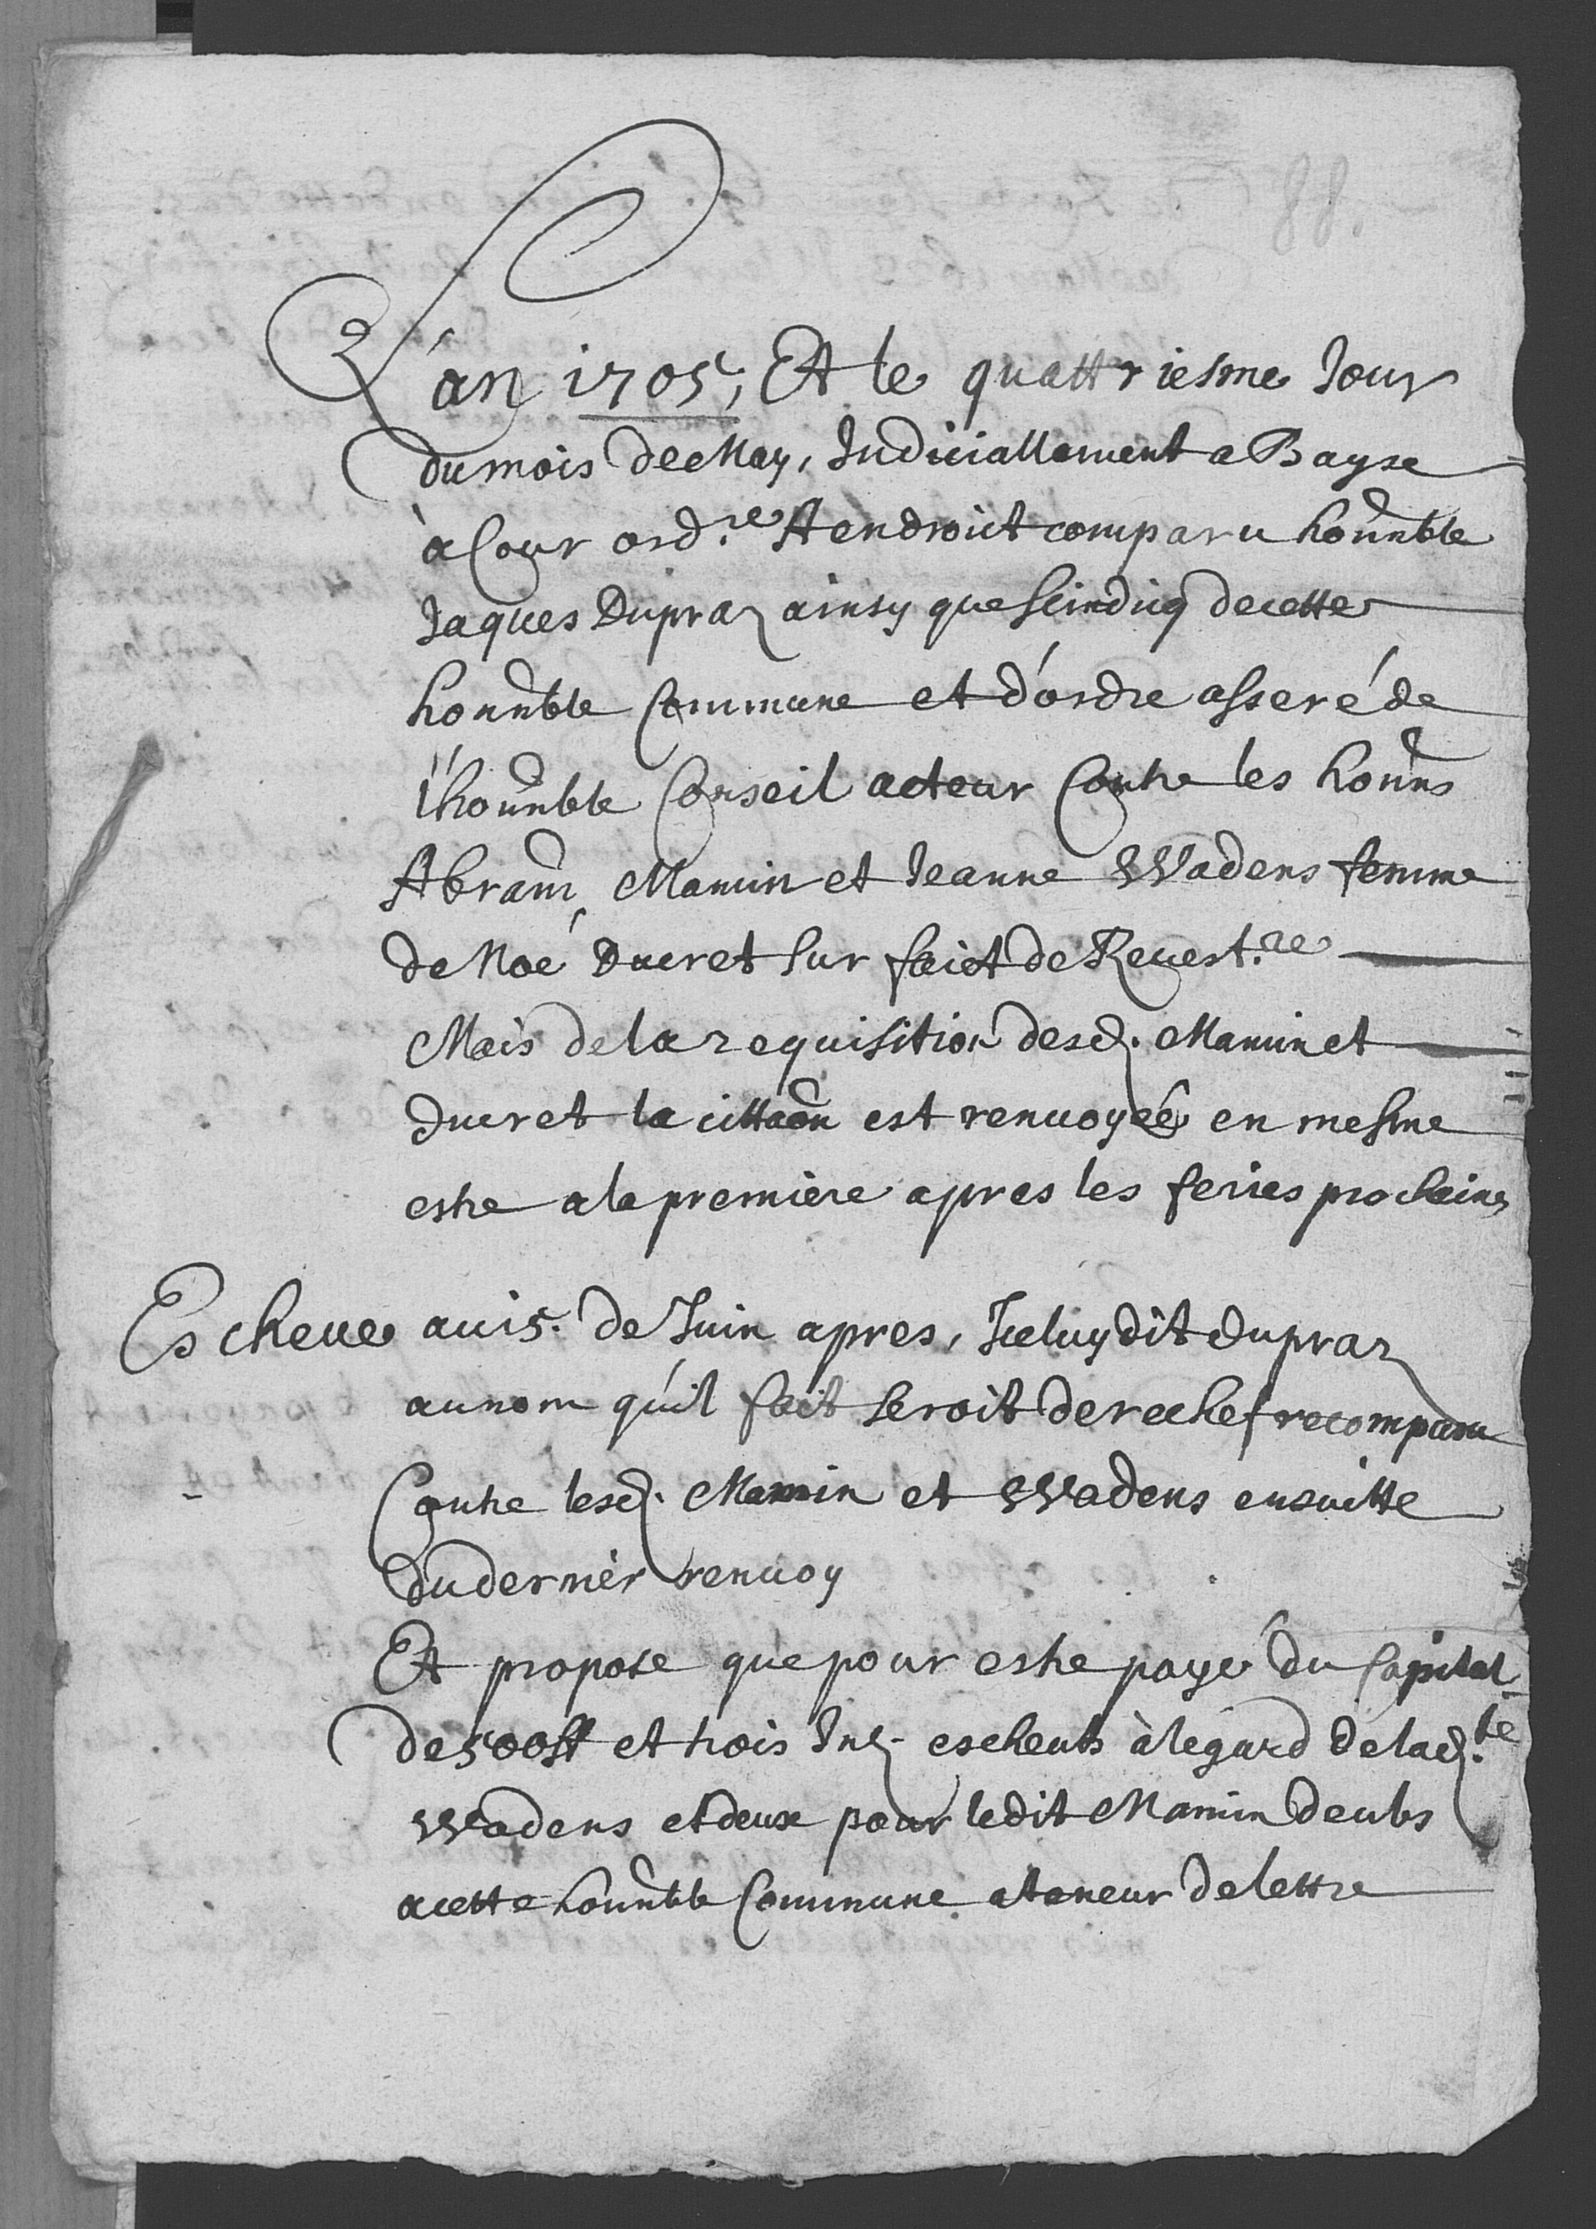 88.
L'an 1705, Et le quattriesme Jour
du mois de May, Judiciallement a Bayse
à Cour ord.re A endroict comparu honnble
Jaques Dupraz ainsy que scindicq de cette
honnble Commune et d'ordre asseré de
l'honnble Conseil acteur Contre les honns
Abram Mamin et Jeanne Wadens femme
de Noé Ducret sur faict de Revest.re
Mais de la requisition desd. Mamin et
Ducret la cittaôn est renuoyée en mesme
estre a la premiere apres les feries prochaines
Escheue au 15. de Juin apres, Iceluy dit Dupraz
au nom qu'il fait seroit derechef recomparu
Contre lesd. Mamin et Wadens ensuitte
du dernier renuoy
Et propose que pour estre payé du Capital
de 500 ff et trois Ins. escheuts à l'égard de lad.te
Wadens et deux pour ledit Mamin deubs
a cette honnble Commune a teneur de lettre